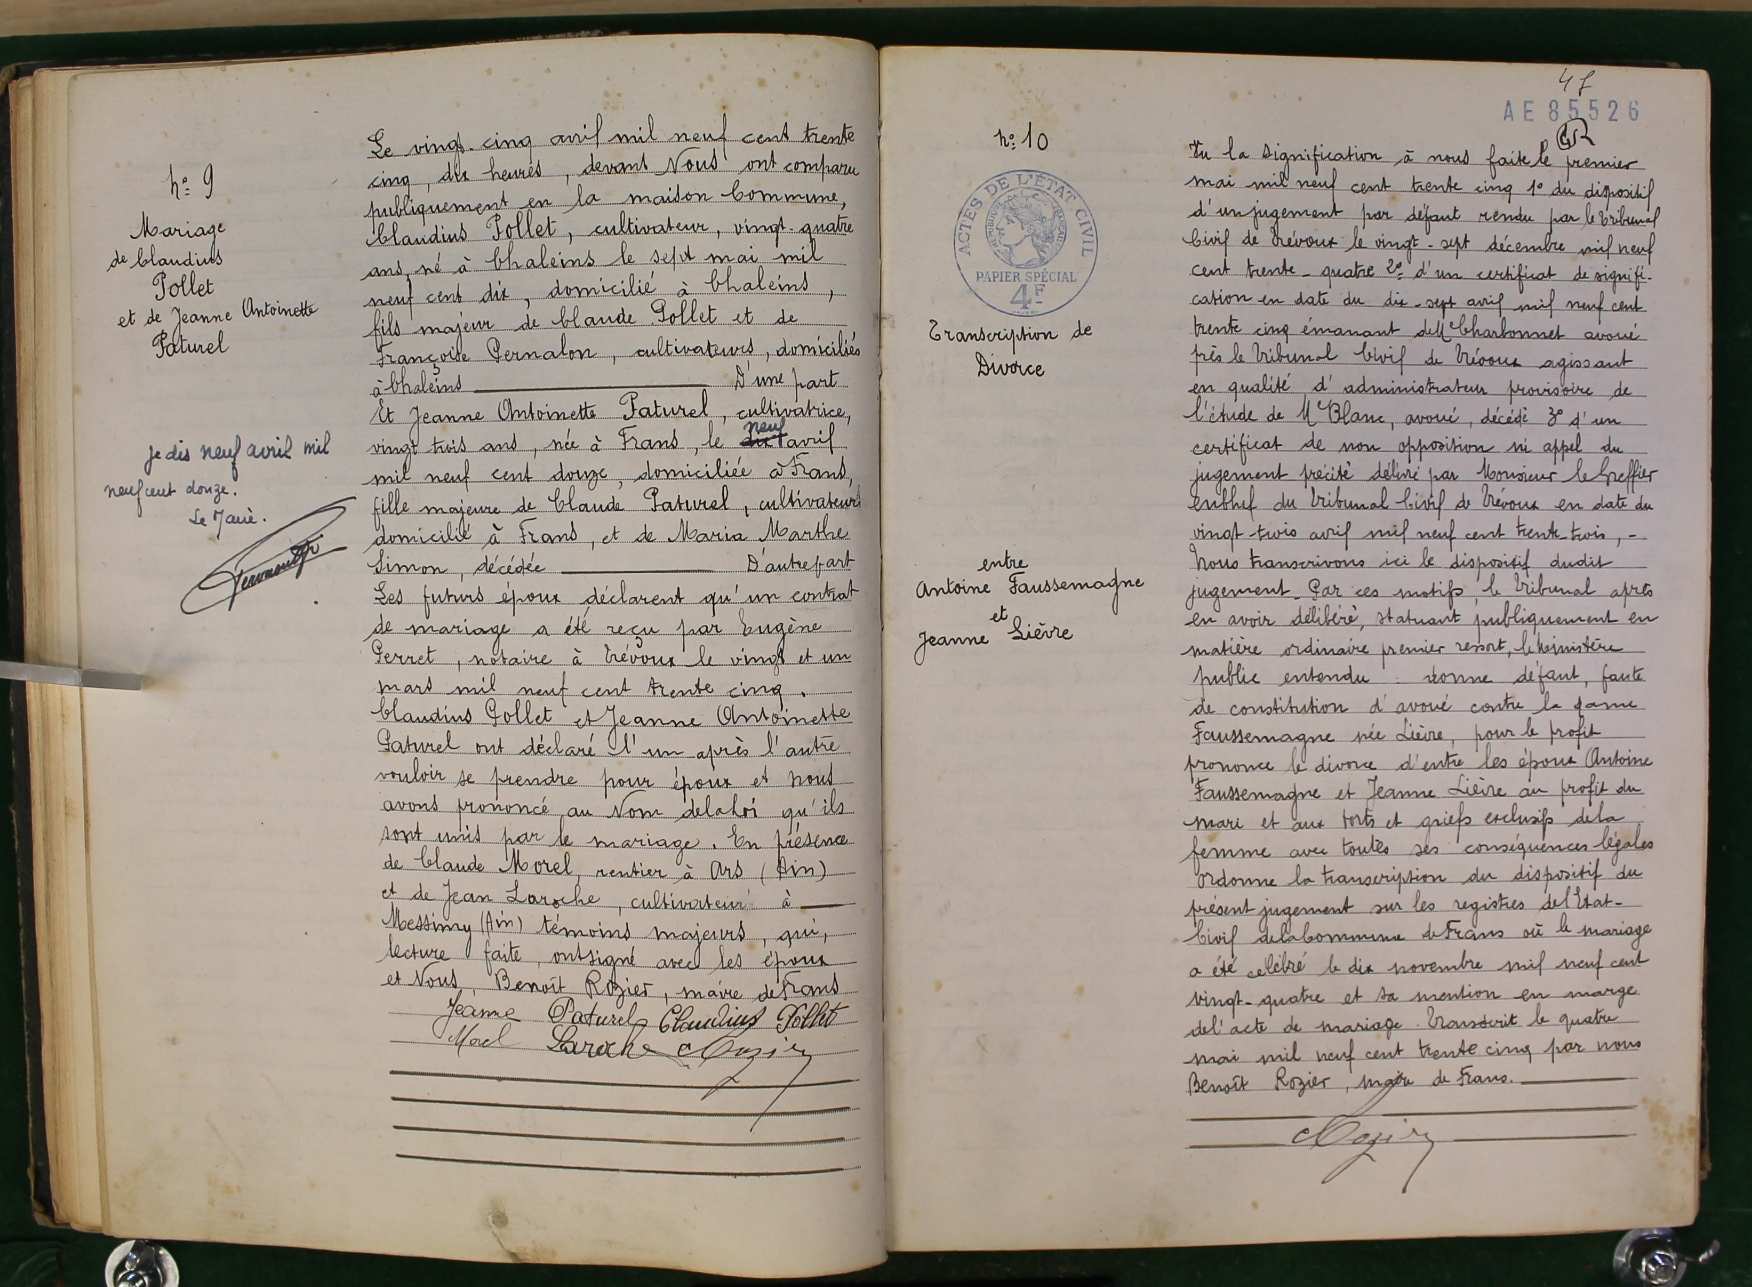 nº 9
Mariage
de Claudius
Pollet
et de Jeanne Antoinette
Paturel
je dis neuf avril mil
neuf cent douze.
Le Maire.
Le vingt-cinq avril mil neuf cent trente
cinq, dix heures, devant Nous ont comparu
publiquement en la maison Commune,
Claudius Pollet, cultivateur, vingt-quatre
ans, né à Chaleins le sept mai mil
neuf cent dix, domicilié à Chaleins,
fils majeur de Claude Pollet et de
Françoise Pernalon, cultivateurs, domiciliés
à Chaleins D'une part
Et Jeanne Antoinette Paturel, cultivatrice,
vingt trois ans, née à Frans, le dix neuf avril
mil neuf cent douze, domiciliée à Frans,
fille majeure de Claude Paturel, cultivateur
domicilié à Frans, et de Maria Marthe
Simon, décédée D'autre part
Les futurs époux déclarent qu'un contrat
de mariage a été reçu par Eugène
Perret, notaire à Trévoux le vingt et un
mars mil neuf cent trente cinq.
Claudius Pollet et Jeanne Antoinette
Paturel ont déclaré l'un après l'autre
vouloir se prendre pour époux et nous
avons prononcé au Nom de la Loi qu'ils
sont unis par le mariage. En présence
de Claude Morel, rentier à Ars (Ain)
et de Jean Laroche, cultivateur à
Messimy (Ain) témoins majeurs, qui,
lecture faite, ont signé avec les époux
et Nous, Benoît Rozier, maire de Frans
Jeanne Paturel Claudius Pollet
Morel Laroche Rozier
47
AE 85526
nº 10
ACTES DE L'ÉTAT CIVIL
RÉPUBLIQUE FRANÇAISE
PAPIER SPÉCIAL
4F
Transcription de
Divorce
entre
Antoine Faussemagne
et
Jeanne Lièvre
Vu la signification à nous faite le premier
mai mil neuf cent trente cinq 1º du dispositif
d'un jugement par défaut rendu par le Tribunal
Civil de Trévoux le vingt-sept décembre mil neuf
cent trente-quatre 2º d'un certificat de signifi-
cation en date du dix-sept avril mil neuf cent
trente cinq émanant de Me Charbonnet avoué
près le Tribunal Civil de Trévoux agissant
en qualité d'administrateur provisoire de
l'étude de Me Blanc, avoué, décédé 3º d'un
certificat de non opposition ni appel du
jugement précité délivré par Monsieur le Greffier
en chef du Tribunal Civil de Trévoux en date du
vingt-trois avril mil neuf cent trente-trois, -
Nous transcrivons ici le dispositif dudit
jugement. Par ces motifs, le Tribunal après
en avoir délibéré, statuant publiquement en
matière ordinaire premier ressort, le Ministère
public entendu donne défaut, faute
de constitution d'avoué contre la dame
Faussemagne née Lièvre, pour le profit
prononce le divorce d'entre les époux Antoine
Faussemagne et Jeanne Lièvre au profit du
mari et aux torts et griefs exclusifs de la
femme avec toutes ses conséquences légales
Ordonne la transcription du dispositif du
présent jugement sur les registres de l'Etat-
Civil de la Commune de Frans où le mariage
a été célébré le dix novembre mil neuf cent
vingt-quatre et sa mention en marge
de l'acte de mariage. Transcrit le quatre
mai mil neuf cent trente cinq par nous
Benoît Rozier, maire de Frans.
Rozier